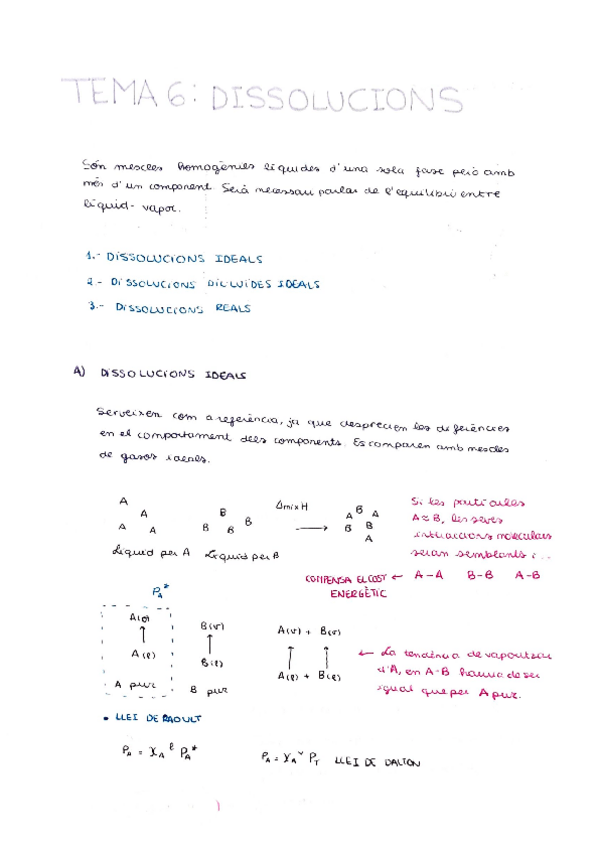 TEMA 6: DISSOLUCIONS
Són mescles homogènies líquides d'una sola fase però amb
més d'un component. Serà necessari parlar de l'equilibri entre
líquid-vapor.
1.- DISSOLUCIONS IDEALS
2.- DISSOLUCIONS DILUÏDES IDEALS
3.- DISSOLUCIONS REALS
A) DISSOLUCIONS IDEALS
Serveixen com a referència, ja que desprecien les diferències
en el comportament dels components. Es comparen amb mescles
de gasos ideals.
A A A A
B B B B
ΔmixH
→
A B A B B A
Líquid per A Líquid per B
Si les partícules
A≈B, les seves
interaccions moleculars
seran semblants i...
COMPENSA EL COST ← A-A B-B A-B
ENERGÈTIC
PA*
A(v) B(v) A(v) + B(v)
↑ ↑ ↑ ↑
A(l) B(l) A(l) + B(l)
A pur B pur
← La tendència de vaporitzar
d'A, en A-B haurà de ser
igual que per A pur.
• LLEI DE RAOULT
PA = XA^l PA* PA = XA^v PT LLEI DE DALTON